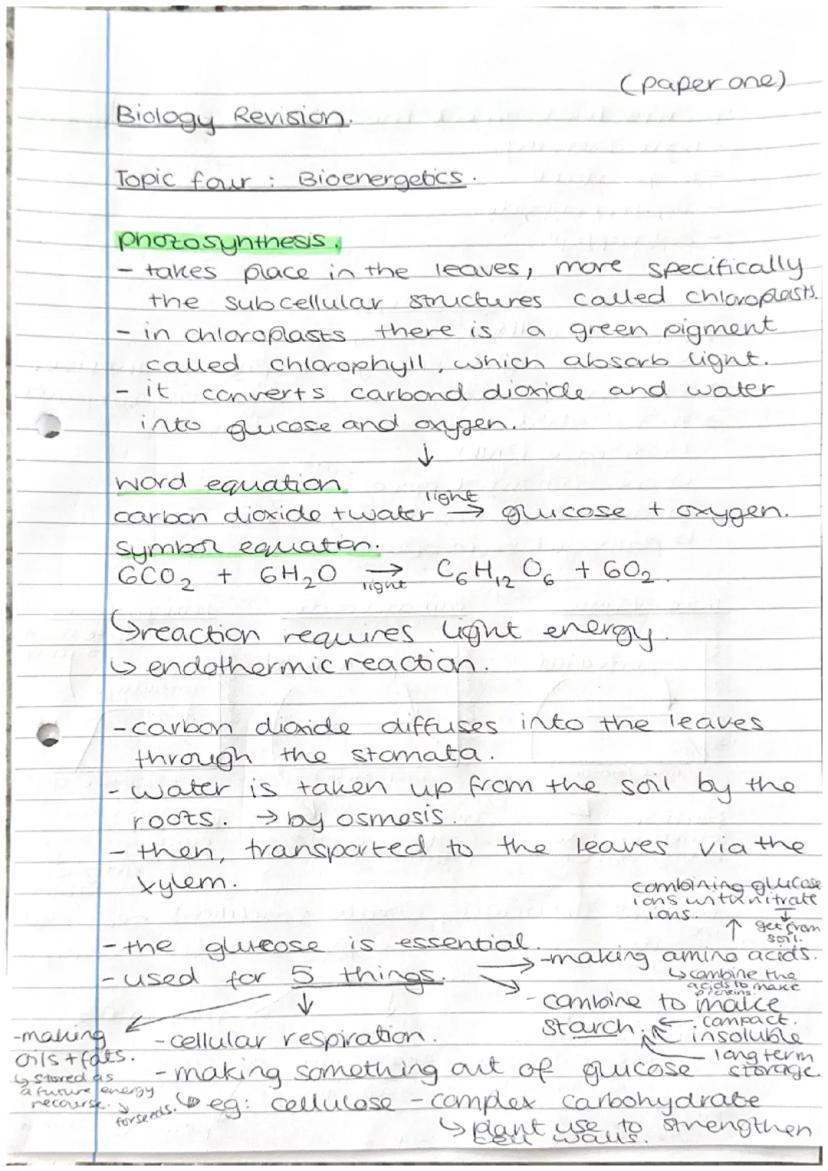 (paper one)
Biology Revision.
Topic four : Bioenergetics.
photosynthesis.
- takes place in the leaves, more specifically
the subcellular structures called chloroplasts.
- in chloroplasts there is a green pigment
called chlorophyll, which absorb light.
- it converts carbond dioxide and water
into glucose and oxygen.
↓
word equation
light
carbon dioxide + water → glucose + oxygen.
symbol equation.
6CO₂ + 6H₂O → C₆H₁₂O₆ + 6O₂.
light
↳ reaction requires light energy.
↳ endothermic reaction.
- carbon dioxide diffuses into the leaves
through the stomata.
- water is taken up from the soil by the
roots. → by osmosis.
- then, transported to the leaves via the
xylem.
combining glucose
ions with nitrate
ions.
get from
soil.
- the glucose is essential.
- used for 5 things.
- making amino acids.
↳ combine the
acids to make
proteins.
- combine to make
starch.
compact.
insoluble
long term
storage.
- making
oils + fats.
↳ stored as
a future energy
recourse.
↳ for seeds.
- cellular respiration.
- making something out of glucose
↳ eg: cellulose - complex carbohydrate
↳ plant use to strengthen
cell walls.